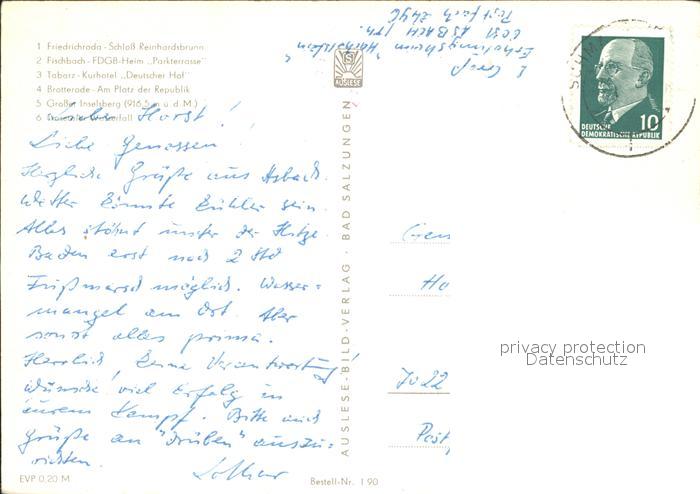 1 Friedrichroda - Schloß Reinhardsbrunn
2 Fischbach - FDGB-Heim „Parkterrasse"
3 Tabarz - Kurhotel „Deutscher Hof"
4 Brotterode - Am Platz der Republik
5 Großer Inselsberg (916,5 m ü. d. M.)
6 Wasserfall
Lieber Horst!
Liebe Genossen!
Herzliche Grüße aus Asbach.
Wetter könnte kühler sein.
Alles stöhnt unter der Hitze.
Baden erst nach 2 Std
Fußmarsch möglich. Wasser=
mangel am Ort. Aber
sonst alles prima.
Herrlich, keine Verantwortung!
Wünsche viel Erfolg in
eurem Kampf. Bitte auch
Grüße an "drüben" auszu-
richten.
Lothar
EVP 0,20 M
Bestell-Nr. I 90
AUSLESE-BILD-VERLAG · BAD SALZUNGEN
AUSLESE
Erholungsheim "Hachelstein"
6081 ASBACH Th.
Postfach 294C
DEUTSCHE
DEMOKRATISCHE REPUBLIK
10
SCHM
Gen
Ho
7022
Post
privacy protection
Datenschutz